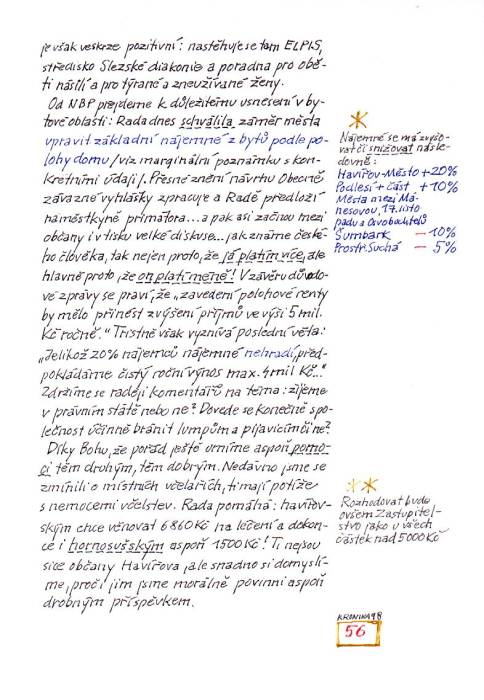 je však veskrze pozitivní: nastěhuje se tam ELPIS,
středisko Slezské diakonie a poradna pro obě-
ti násilí a pro týrané a zneužívané ženy.
Od NBP přejdeme k důležitému usnesení v by-
tové oblasti: Rada dnes schválila záměr města
upravit základní nájemné z bytů podle po-
lohy domu /viz marginální poznámku s kon-
kretními údaji/. Přesné znění návrhu Obecně
závazné vyhlášky zpracuje a Radě předloží
náměstkyně primátora...a pak asi začnou mezi
občany i v tisku velké diskuse...jak známe české-
ho člověka, tak nejen proto, že já platím více, ale
hlavně proto, že on platí méně! V závěru důvodo-
vé zprávy se praví, že „zavedení polohové renty
by mělo přinést zvýšení příjmů ve výši 5 mil.
Kč ročně." Tristně však vyznívá poslední věta:
„Jelikož 20% nájemců nájemné nehradí, před-
pokládáme čistý roční výnos max. 4 mil Kč..."
Zdržíme se raději komentářů na téma: žijeme
v právním státě nebo ne? Dovede se konečně spo-
lečnost účinně bránit lumpům a pijavicím či ne?
Díky Bohu, že pořád ještě umíme aspoň pomo-
ci těm druhým, těm dobrým. Nedávno jsme se
zmínili o místních včelařích, ti mají potíže
s nemocemi včelstev. Rada pomáhá: havířov-
ským chce věnovat 6860 Kč na léčení a dokon-
ce i hornosušským aspoň 1500 Kč! Ti nejsou
sice občany Havířova, ale snadno si domyslí-
me, proč i jim jsme morálně povinni aspoň
drobným příspěvkem.
Nájemné se má zvyšo-
vat či snižovat násle-
dovně:
Havířov-Město +20%
Podlesí + část +10%
Města mezi Má-
nesovou, 17. listo
padu a Osvoboditelů
Šumbark - 10%
Prostř. Suchá - 5%
Rozhodovat bude
ovšem Zastupitel-
stvo jako u všech
částek nad 5000 Kč
KRONIKA 98
56